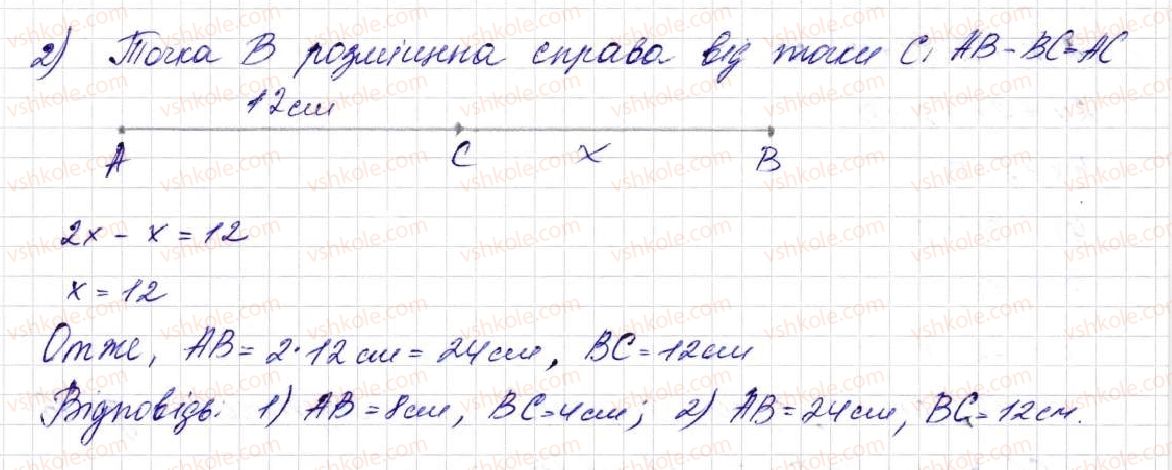 2) Точка B розміщена справа від точки C, AB - BC = AC
12 см
A C x B
2x - x = 12
x = 12
Отже, AB = 2·12 см = 24 см, BC = 12 см
Відповідь: 1) AB = 8 см, BC = 4 см; 2) AB = 24 см, BC = 12 см.
vshkole.com